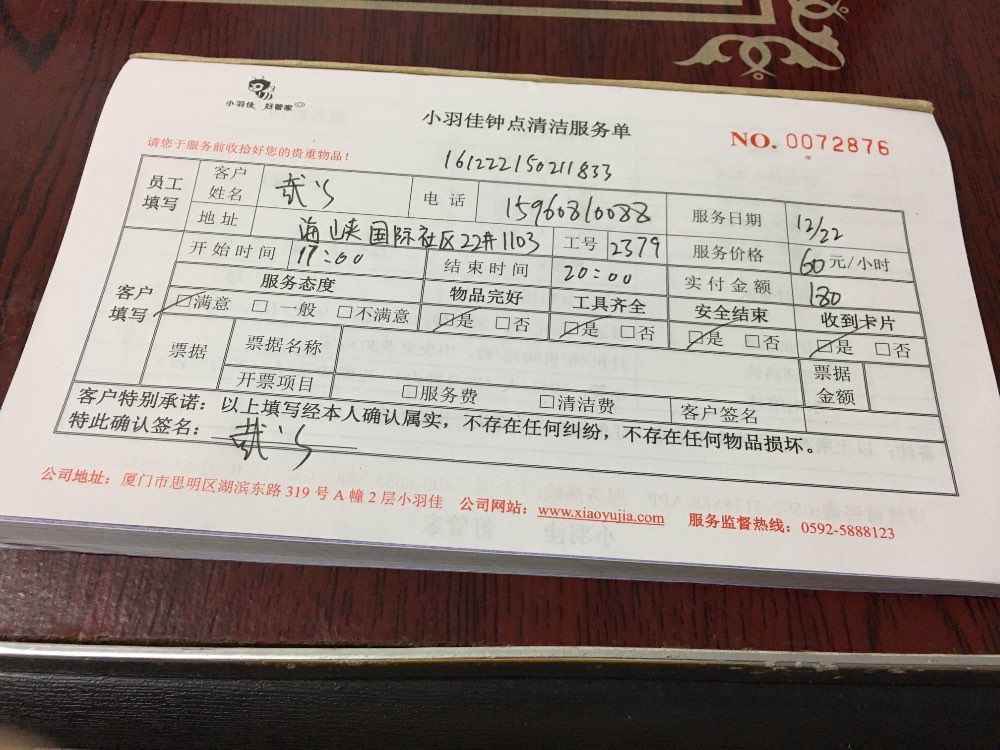 小羽佳 好管家
小羽佳钟点清洁服务单
NO. 0072876
请您于服务前收拾好您的贵重物品！
161222150211833
员工填写 客户姓名 电话 15960810088 服务日期 12/22
地址 海峡国际社区22#1103 工号 2379 服务价格 60元/小时
客户填写 开始时间 17:00 结束时间 20:00 实付金额 180
服务态度 物品完好 工具齐全 安全结束 收到卡片
□满意 □一般 □不满意 □是 □否 □是 □否 □是 □否 □是 □否
票据 票据名称 票据金额
开票项目 □服务费 □清洁费 客户签名
客户特别承诺：以上填写经本人确认属实，不存在任何纠纷，不存在任何物品损坏。
特此确认签名：
公司地址：厦门市思明区湖滨东路319号A幢2层小羽佳 公司网站：www.xiaoyujia.com 服务监督热线：0592-5888123